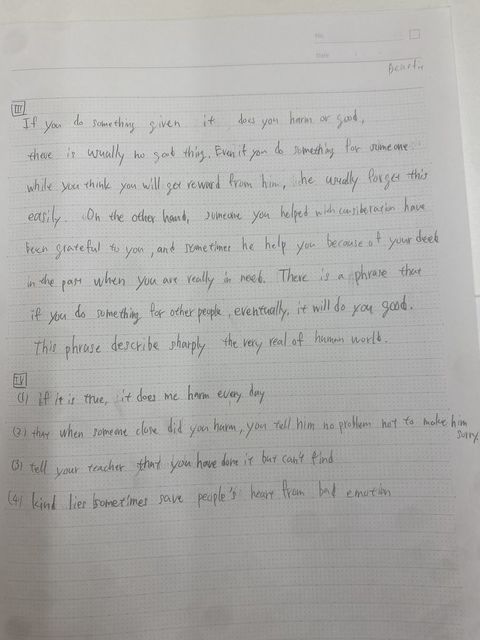 No.
Date
III
If you do something given it does you harm or good,
there is usually no good thing. Even if you do something for someone
while you think you will get reward from him, he usually forget this
easily. On the other hand, someone you helped with consideration have
been grateful to you, and sometimes he help you because of your deed
in the past when you are really in need. There is a phrase that
if you do something for other people, eventually, it will do you good.
This phrase describe sharply the very real of human world.
IV
(1) if it is true, it does me harm every day
(2) that when someone close did you harm, you tell him no problem not to make him
sorry
(3) tell your teacher that you have done it but can't find
(4) kind lies sometimes save people's heart from bad emotion